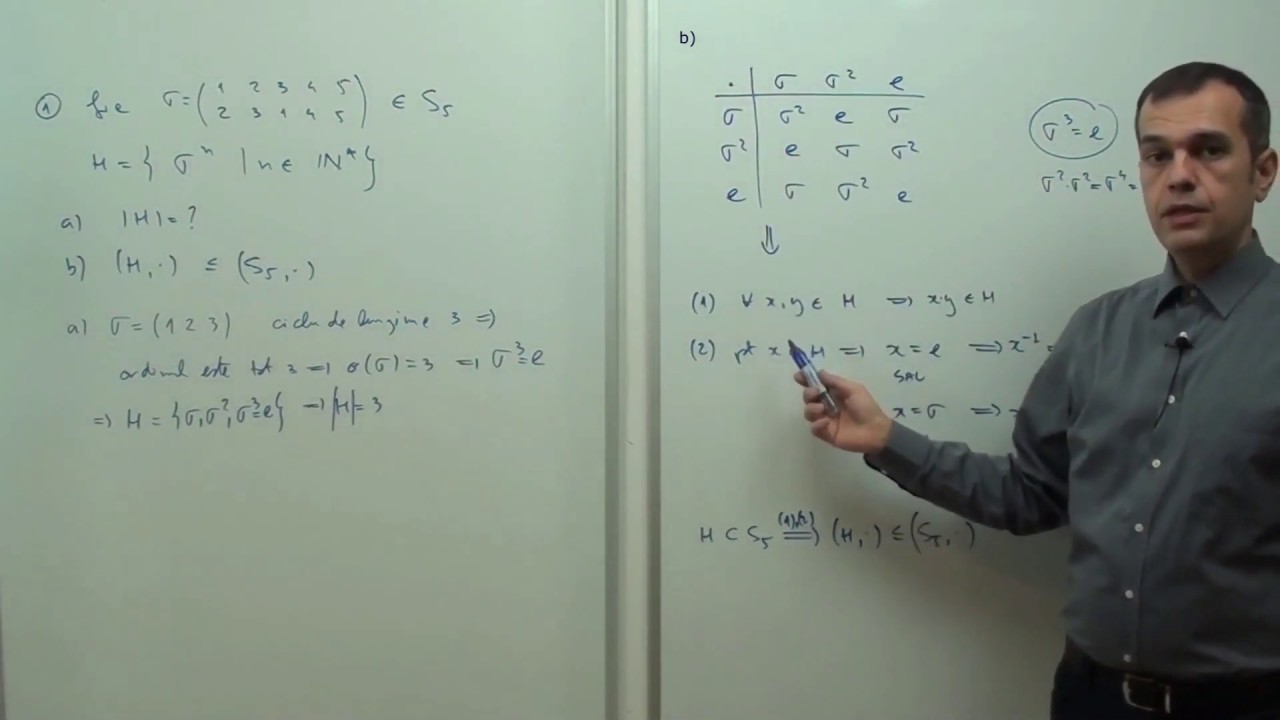 ① Fie σ = ( 1 2 3 4 5
2 3 1 4 5 ) ∈ S₅
H = { σⁿ | n ∈ ℕ* }
a) |H| = ?
b) (H, ·) ≤ (S₅, ·)
a) σ = (1 2 3) ciclu de lungime 3 ⇒
ordinul este tot 3 ⇒ o(σ) = 3 ⇒ σ³ = e
⇒ H = {σ, σ², σ³=e} ⇒ |H| = 3
b)
· | σ σ² e
σ | σ² e σ
σ² | e σ σ²
e | σ σ² e
⇓
σ³ = e
σ²·σ² = σ⁴ =
(1) ∀ x, y ∈ H ⇒ x·y ∈ H
(2) pt x H ⇒ x = e ⇒ x⁻¹ =
SAU
x = σ ⇒
H ⊂ S₅ ⇒ (1),(2) (H, ·) ≤ (S₅, ·)